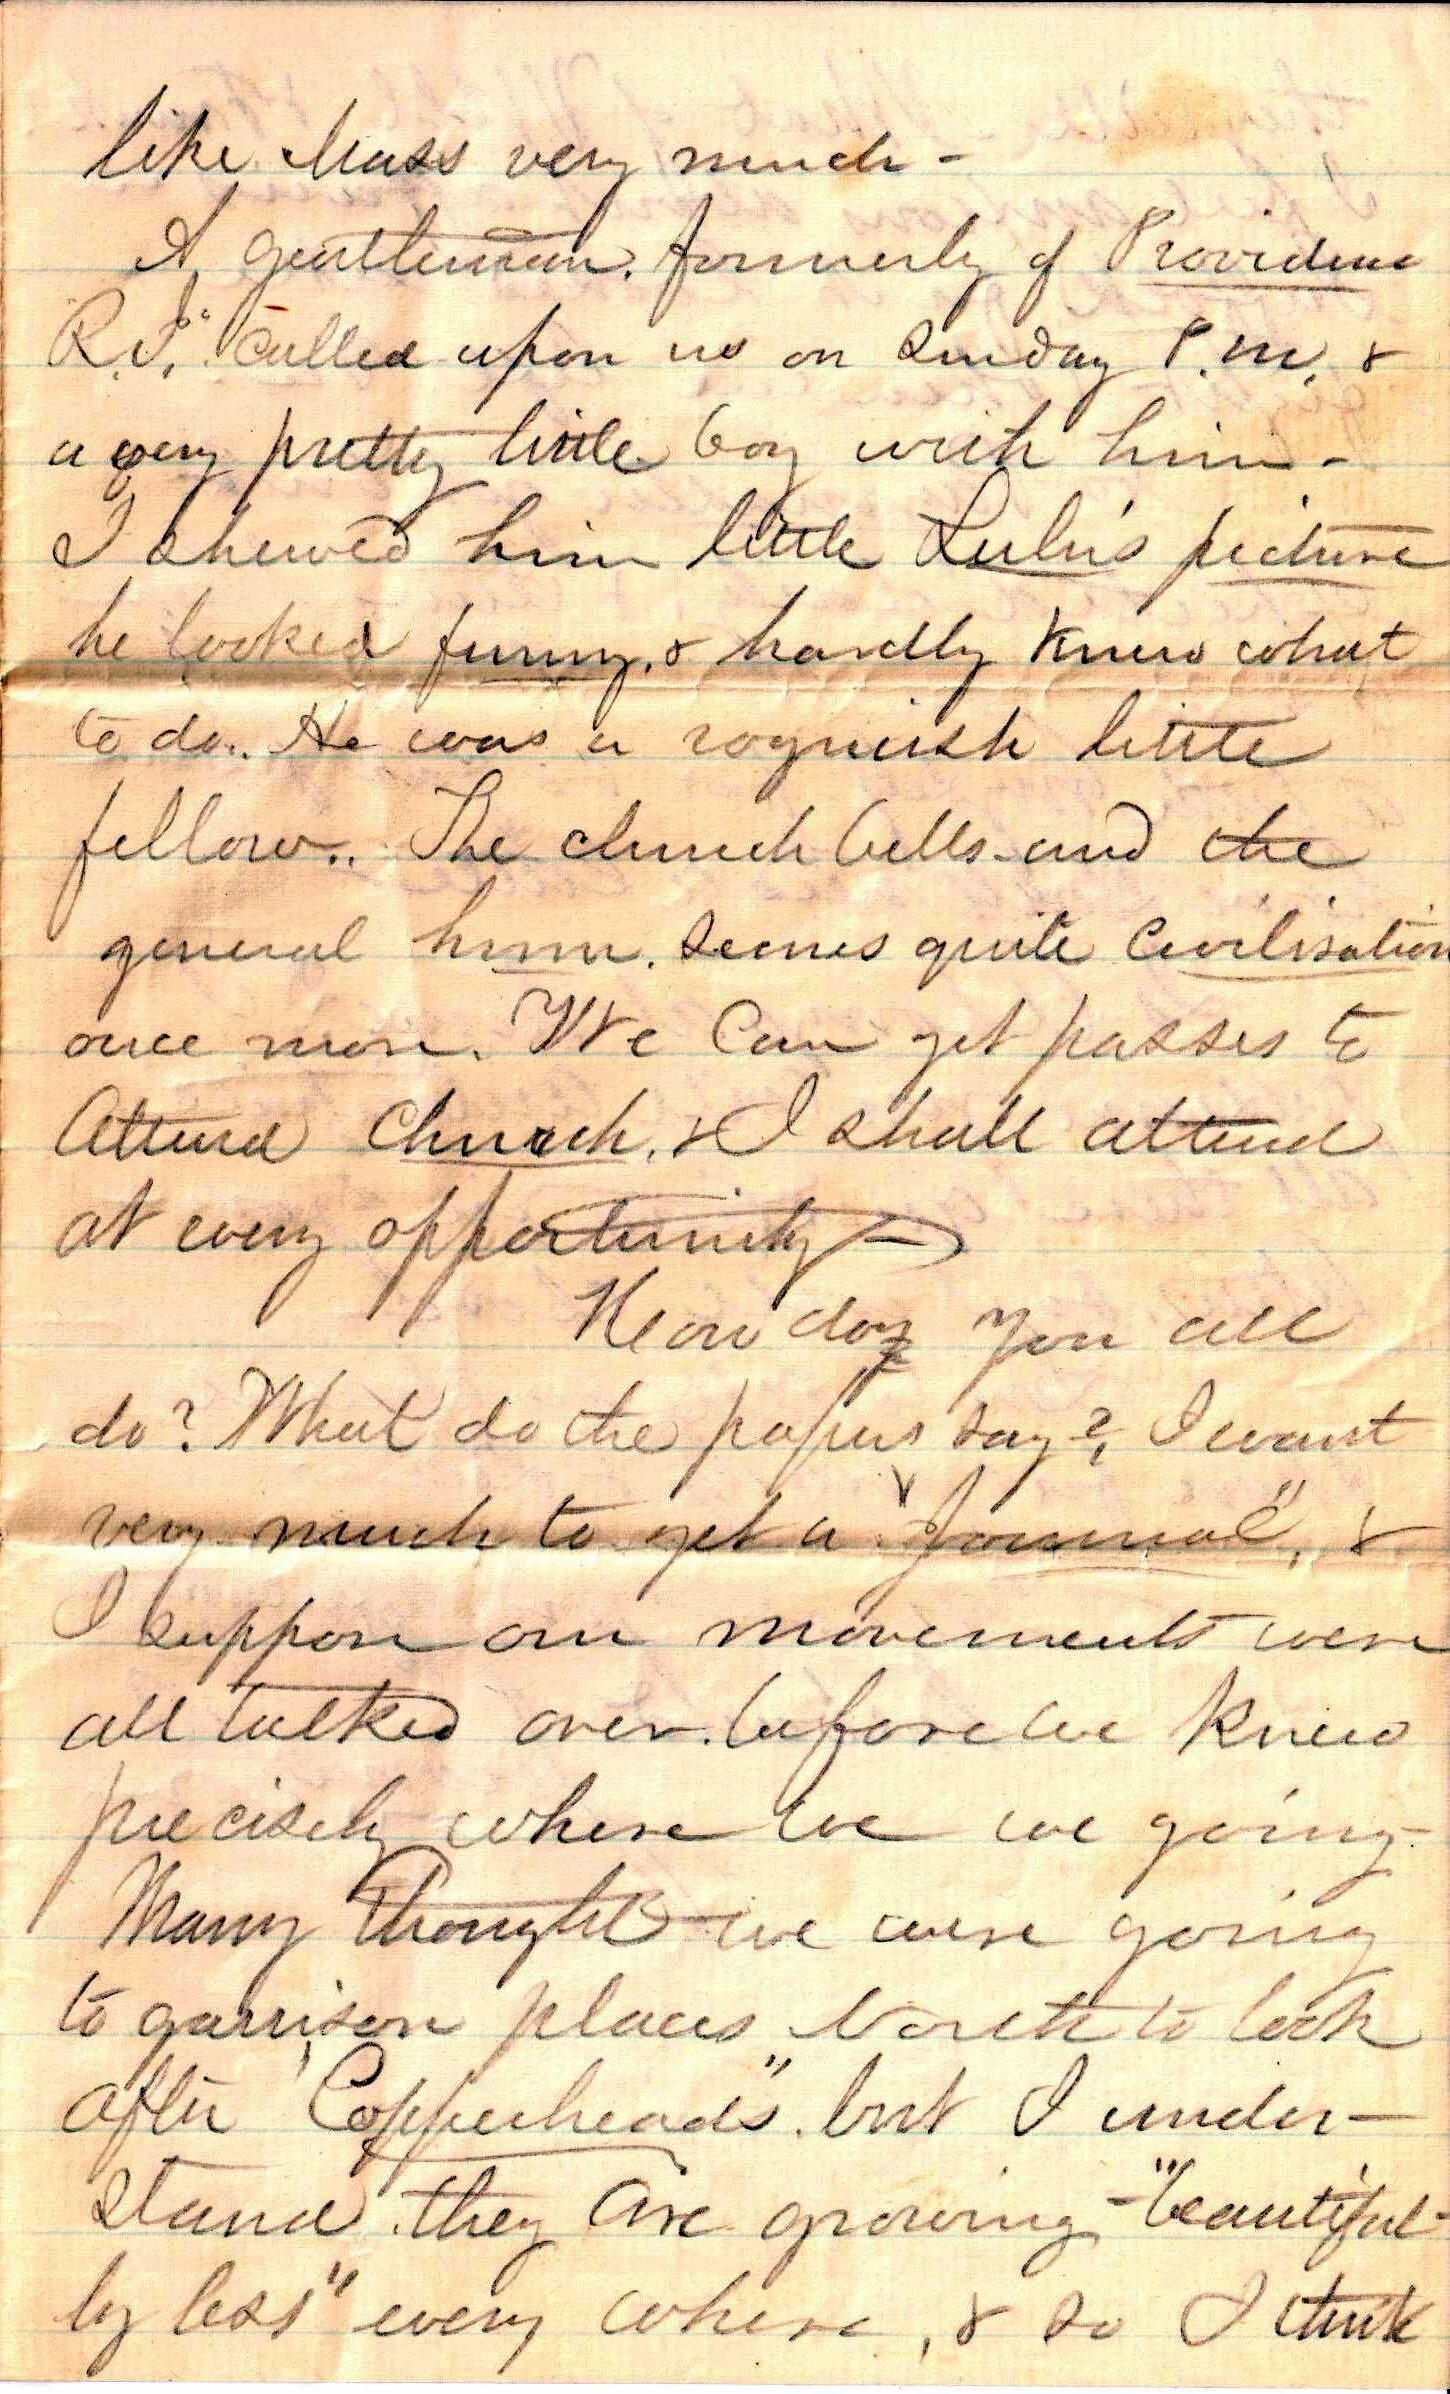 like Mass very much -
A, gentleman, formerly of Providence
R.I., called upon us on Sunday P.M. &
a very pretty little boy with him -
I shewed him little Lulu's picture
he looked funny, & hardly knew what
to do.. He was a roguish little
fellow.. The church bells and the
general hum. seems quite civilisation
once more. We can get passes to
attend church, & I shall attend
at every opportunity -
How do you all
do? What do the papers say?, I want
very much to get a "Journal", &
I suppose our movements were
all talked over before we knew
precisely where we we going -
Many thought we were going
to garrison places North to look
after "Copperheads". but I under-
stand they are growing - "beautiful-
ly less" every where, & so I think